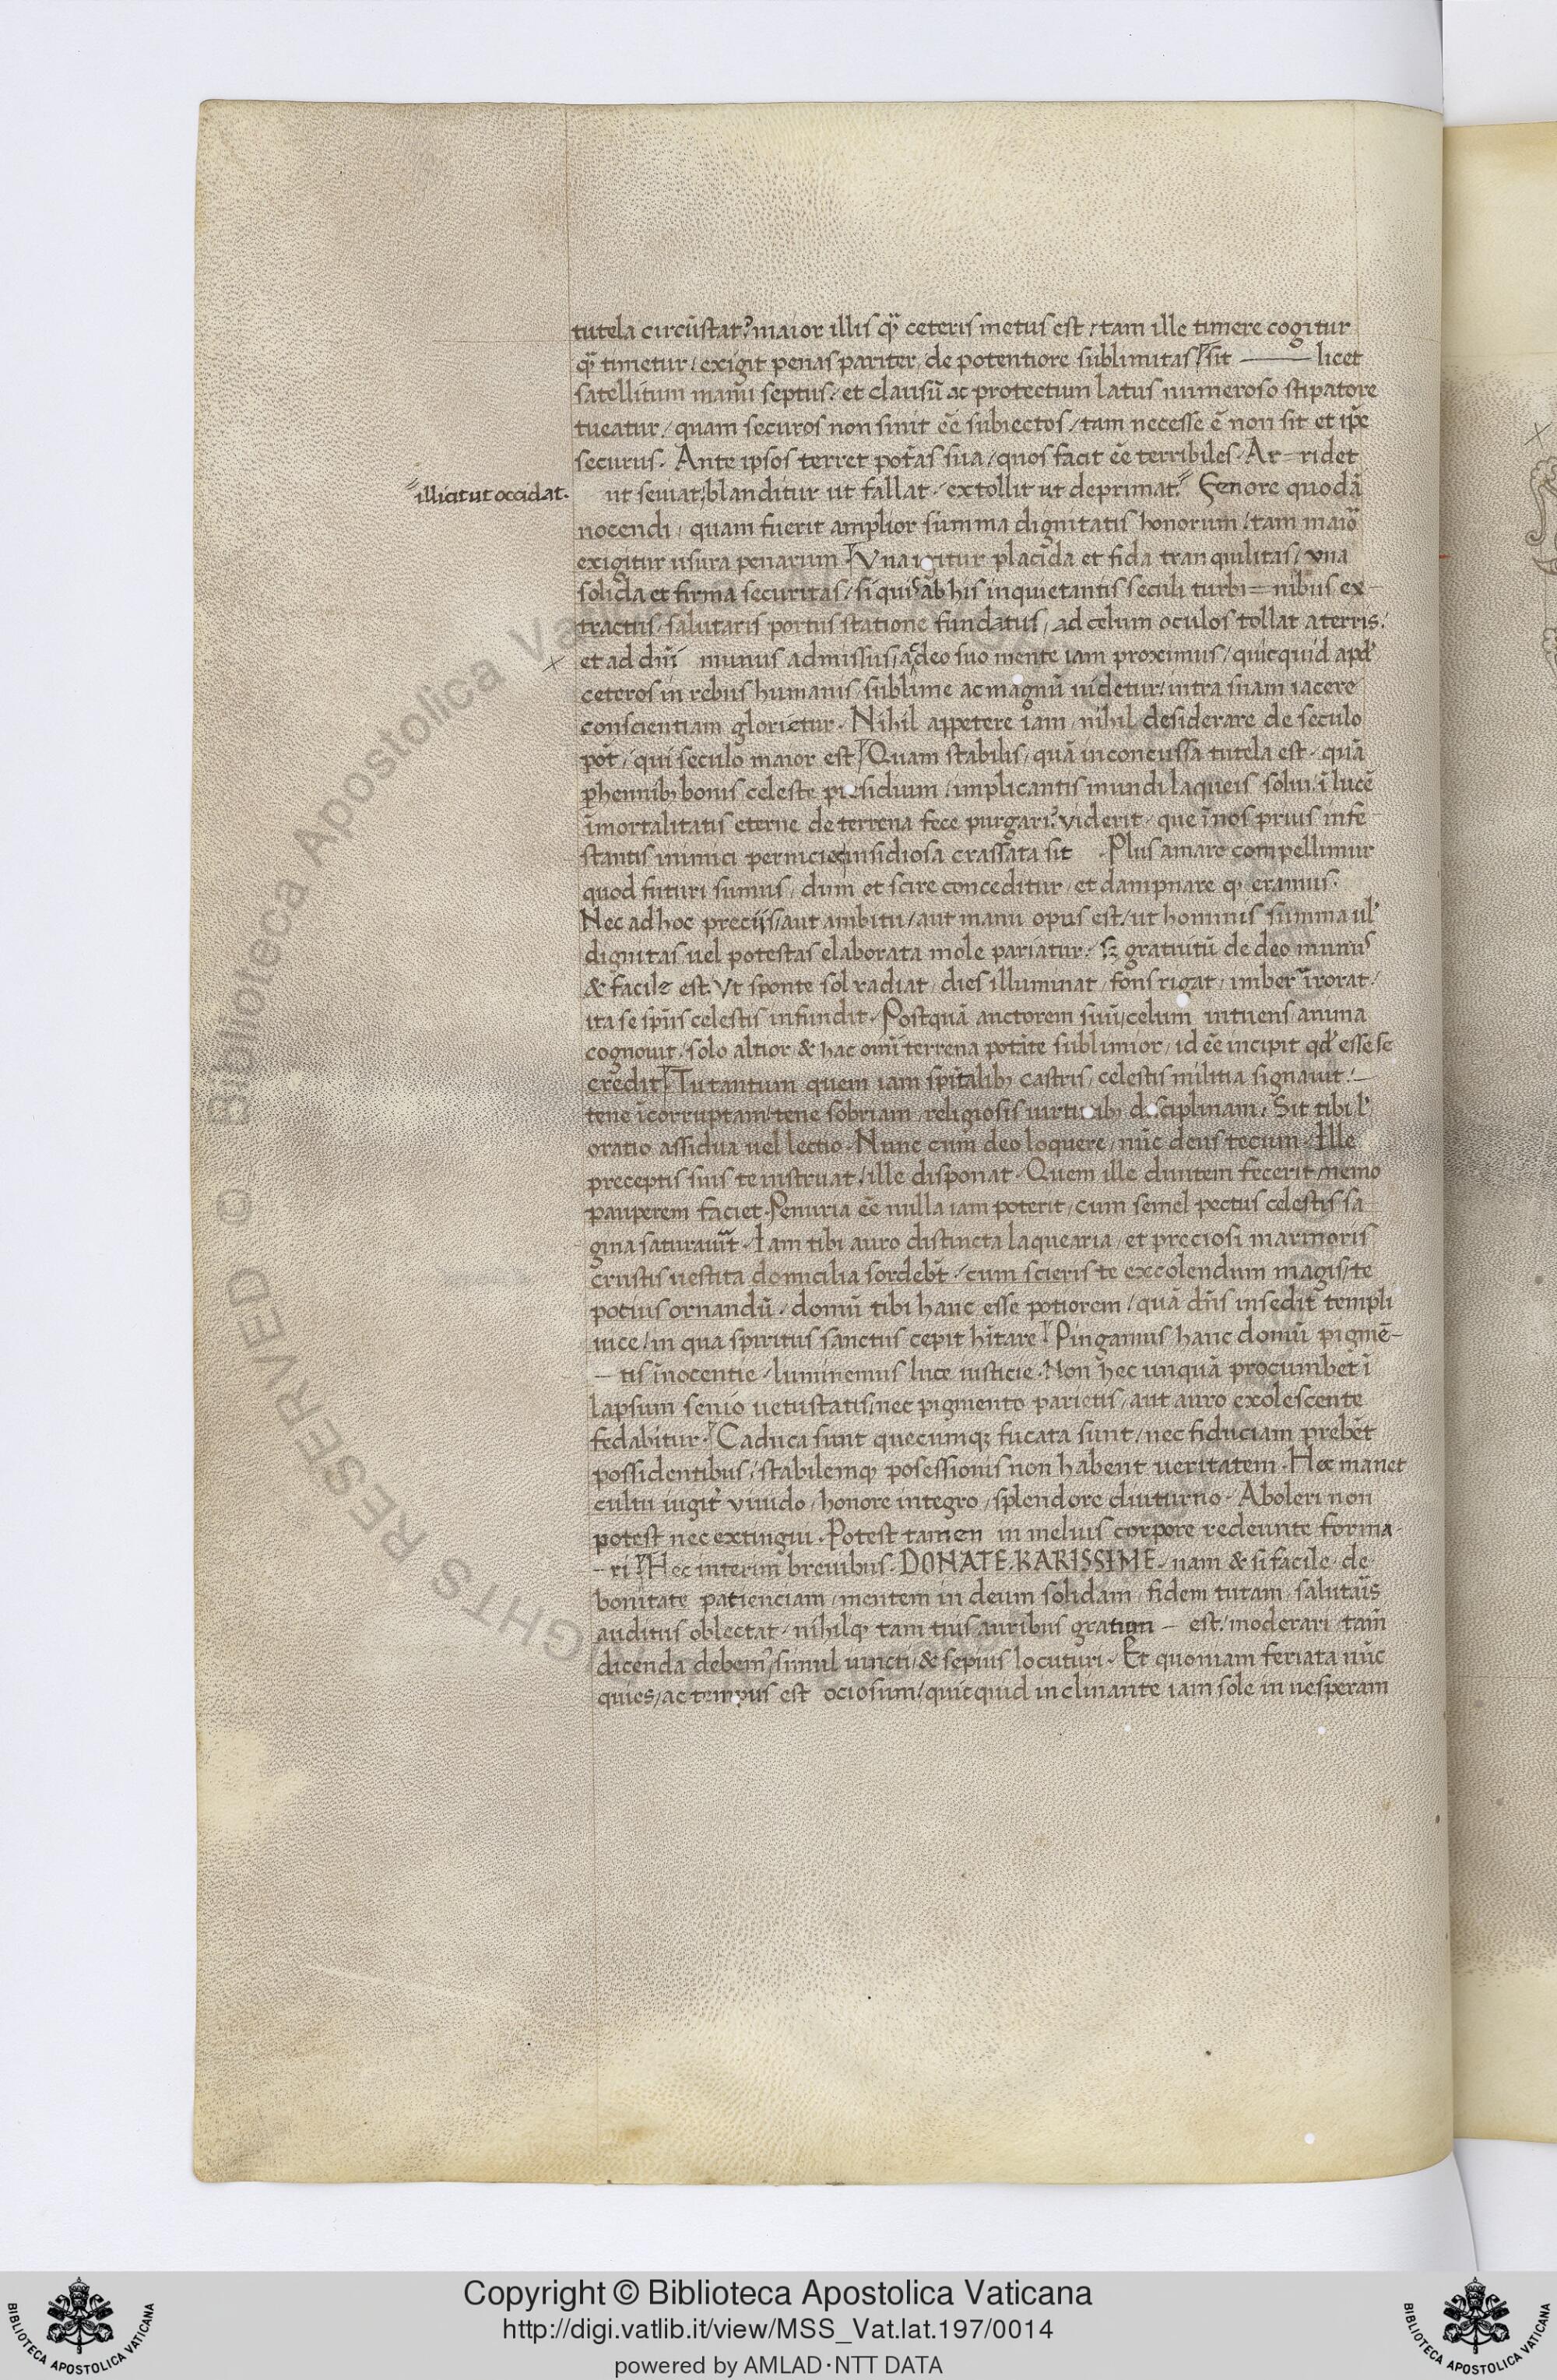 tutela circūstat? maior illis qͣ ceteris metus est / tam ille timere cogitur
qͣ timetur / exigit penas pariter / de potentiore sublimitas / sit — licet
satellitum manu septus / et clausū ac protectum latus numeroso stipatore
tueatur / quam securos non sinit eē subiectos / tam necesse ē non sit et ip̄e
securus. Ante ipsos terret pot̄as sua / quos facit eē terribiles. Ar=ridet
illicit ut occidat.
ut seviat; blanditur ut fallat / extollit ut deprimat. Fenore quodā
nocendi / quam fuerit amplior summa dignitatis honorum / tam maio᷑
exigitur usura penarum. Una igitur placida et fida tranquilitas / una
solida et firma securitas / si quis ab his inquietantis seculi turbi=nibus ex-
tractus salutaris portus statione fundatus / ad celum oculos tollat a terris /
et ad dn̄i munus admissus / ac deo suo mente iam proximus / quicquid apd᷒
ceteros in rebus humanis / sublime ac magnū videtur / intra suam iacere
conscientiam glorietur. Nihil appetere iam / nihil desiderare de seculo
pot̄ / qui seculo maior est. Quam stabilis / quā inconcussa tutela est / quā
ꝑhennibꝫ bonis celeste presidium / implicantis mundi laqueis solui / ī lucē
īmortalitatis eterne de terrena fece purgari? viderit / que ī nos prius infe
stantis inimici pernicies insidiosa crassata sit . Plus amare compellimur
quod futuri sumus / dum et scire conceditur / et dampnare qͦ eramus.
Nec ad hoc preciis / aut ambitu / aut manu opus est / ut hominis summa ul᷒
dignitas uel potestas elaborata mole pariatur / sꝫ gratuitū de deo munus
& facile est. Ut sponte sol radiat / dies illuminat / fons rigat / imber īrorat /
ita se sp̄us celestis infundit. Postquā auctorem suū / celum intuens anima
cognouit / solo altior & hac omī terrena potāte sublimior / id eē incipit qd᷒ esse se
credit. Tu tantum quem iam sp̄italibꝫ castris / celestis militia signauit. —
tene īcorruptam / tene sobriam / religiosis uirtutibꝫ disciplinam. Sit tibi l᷒
oratio assidua uel lectio. Nunc cum deo loquere / nūc deus tecum. Ille
preceptis suis te instruat / ille disponat. Quem ille diuitem fecerit / nemo
pauperem faciet. Penuria eē nulla iam poterit / cum semel pectus celestis sa
gina saturauīt. Iam tibi auro distincta laquearia / et preciosi marmoris
crustis uestita domicilia sordebt̄ / cum scieris te excolendum magis / te
potius ornandū / domū tibi hanc esse potiorem / quā dn̄s insedit templi
uice / in qua spiritus sanctus cepit hītare. Pingamus hanc domū pigmē-
— tis īnocentie / luminemus luce iusticie. Non hec unquā procumbet ī
lapsum senio uetustatis / nec pigmento parietis / aut auro exolescente
fedabitur. Caduca sunt quecumqꝫ fucata sunt / nec fiduciam prebēt
possidentibus / stabilemqꝫ posessionis non habent ueritatem. Hec manet
cultu iugit᷑ viuido / honore integro / splendore diuturno. Aboleri non
potest nec extingui. Potest tamen in melius corpore redeunte forma-
— ri. Hec interim breuibus. DONATE KARISSIME. nam & si facile de
bonitate patienciam / mentem in deum solidam / fidem tutam / salutaīs
auditus oblectat / nihilqꝫ tam tuis auribus gratum — est / moderari tam̄
dicenda debem᷒ / simul iuncti / & sepius locuturi. Et quoniam feriata nūc
quies / ac tempus est ociosum / quicquid inclinante iam sole in uesperam
Copyright © Biblioteca Apostolica Vaticana
http://digi.vatlib.it/view/MSS_Vat.lat.197/0014
powered by AMLAD·NTT DATA